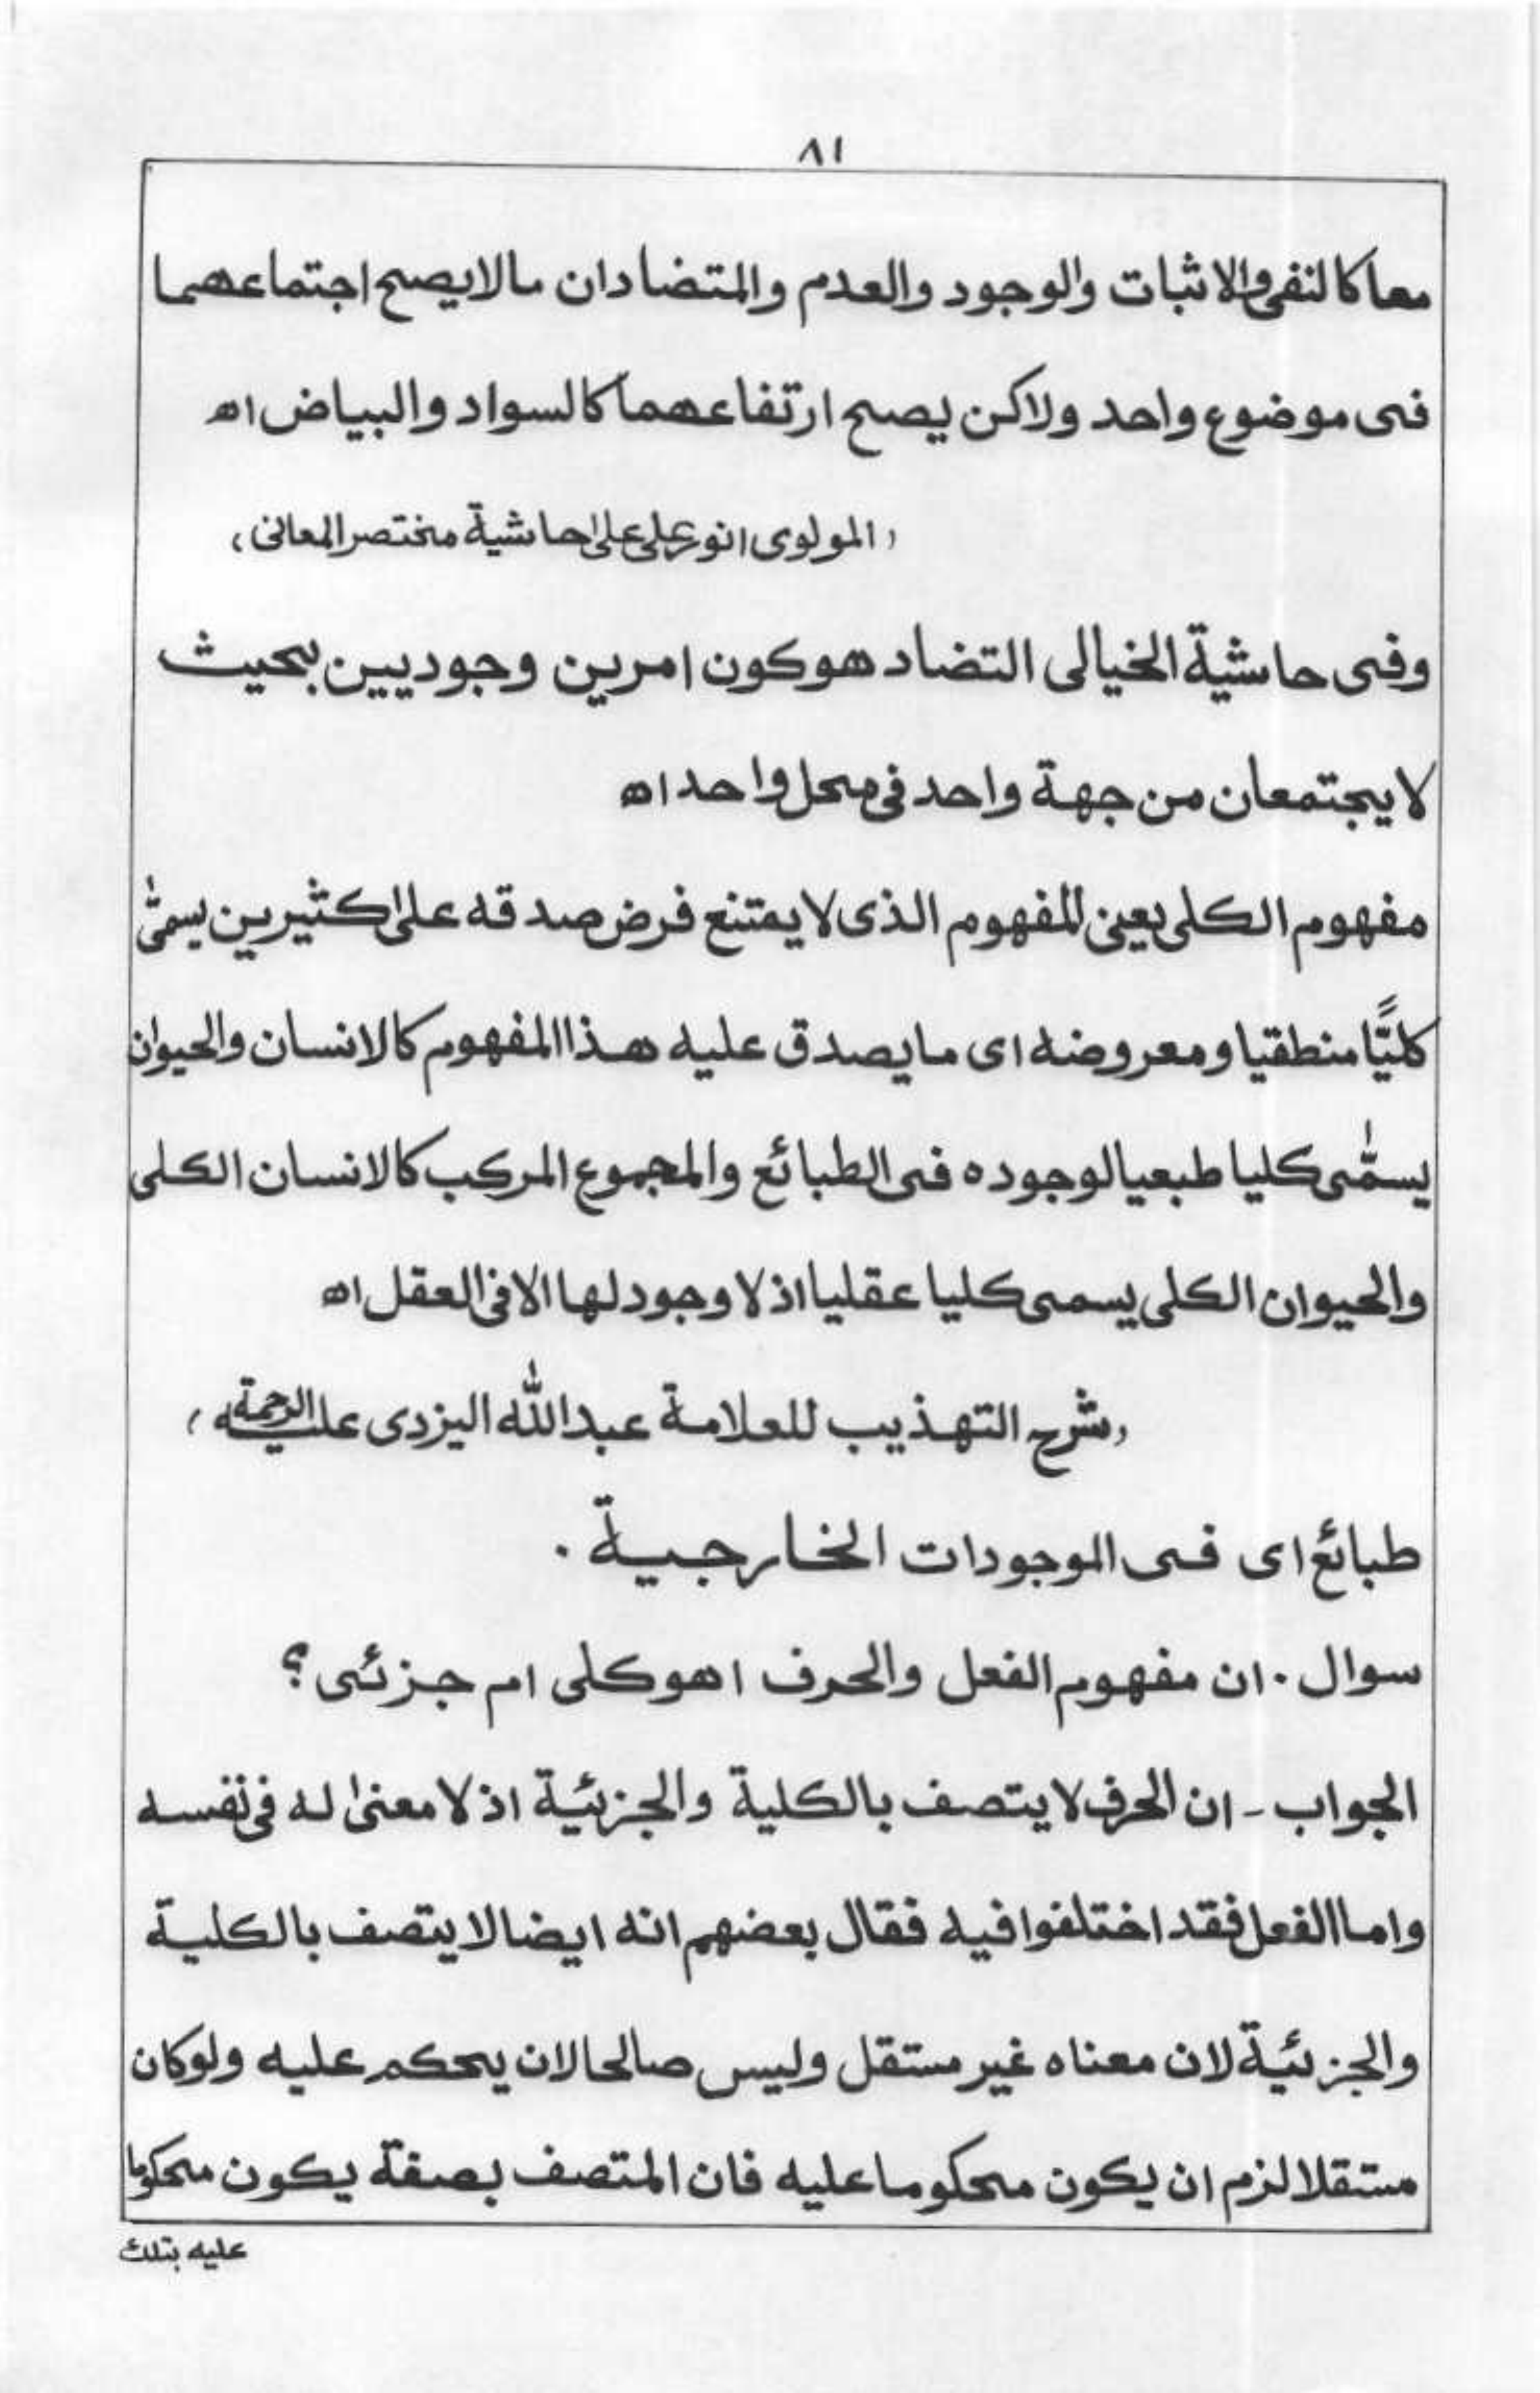 ٨١
معا كالنفى والاثبات والوجود والعدم والمتضادان مالا يصح اجتماعهما
فى موضوع واحد ولاكن يصح ارتفاعهما كالسواد والبياض اھ
(المولوى انور على على حاشية مختصر المعانى)
وفى حاشية الخيالى التضاد هو كون امرين وجوديين بحيث
لا يجتمعان من جهة واحد فى محل واحد اھ
مفهوم الكلى يعنى المفهوم الذى لا يمتنع فرض صدقه على كثيرين يسمىٰ
كليًّا منطقيا ومعروضه اى ما يصدق عليه هذا المفهوم كالانسان والحيوان
يسمّٰى كليا طبعيا لوجوده فى الطبائع والمجموع المركب كالانسان الكلى
والحيوان الكلى يسمى كليا عقليا اذ لا وجود لها الا فى العقل اھ
(شرح التهذيب للعلامة عبد الله اليزدى عليه الرحمة)
طبائع اى فى الموجودات الخارجية ٠
سوال ٠ ان مفهوم الفعل والحرف اهو كلى ام جزئى؟
الجواب - ان الحرف لا يتصف بالكلية والجزئية اذ لا معنىٰ له فى نفسه
واما الفعل فقد اختلفوا فيه فقال بعضهم انه ايضا لا يتصف بالكلية
والجزئية لان معناه غير مستقل وليس صالحا لان يحكم عليه ولو كان
مستقلا لزم ان يكون محكوما عليه فان المتصف بصفة يكون محكوما
عليه بتلك